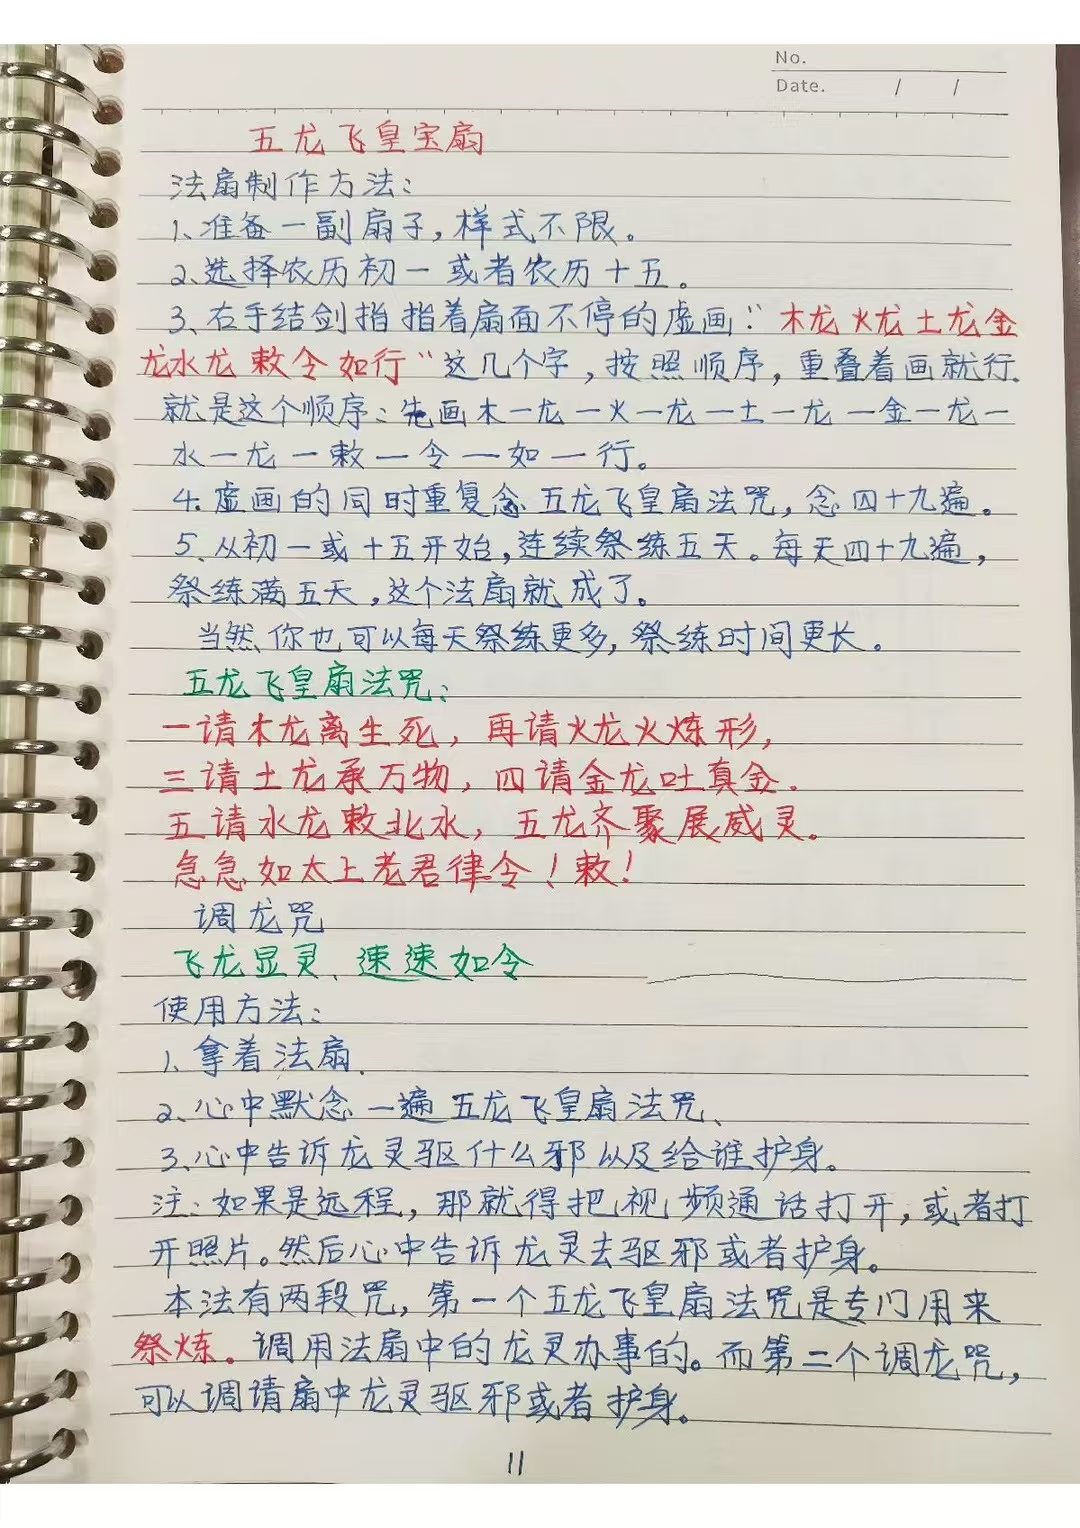 No.
Date. / /
五龙飞皇宝扇
法扇制作方法：
1、准备一副扇子，样式不限。
2、选择农历初一或者农历十五。
3、右手结剑指指着扇面不停的虚画：“木龙火龙土龙金
龙水龙敕令如行“这几个字，按照顺序，重叠着画就行.
就是这个顺序：先画木一龙一火一龙一土一龙一金一龙一
水一龙一敕一令一如一行。
4.虚画的同时重复念五龙飞皇扇法咒，念四十九遍。
5、从初一或十五开始，连续祭练五天。每天四十九遍，
祭练满五天，这个法扇就成了。
当然、你也可以每天祭练更多，祭练时间更长。
五龙飞皇扇法咒：
一请木龙离生死，再请火龙火炼形，
三请土龙承万物，四请金龙吐真金.
五请水龙敕北水，五龙齐聚展威灵。
急急如太上老君律令！敕！
调龙咒
飞龙显灵、速速如令
使用方法：
1、拿着法扇.
2、心中默念一遍五龙飞皇扇法咒、
3、心中告诉龙灵驱什么邪以及给谁护身。
注：如果是远程，那就得把视频通话打开，或者打
开照片。然后心中告诉龙灵去驱邪或者护身。
本法有两段咒，第一个五龙飞皇扇法咒是专门用来
祭炼。调用法扇中的龙灵办事的。而第二个调龙咒，
可以调请扇中龙灵驱邪或者护身。
11